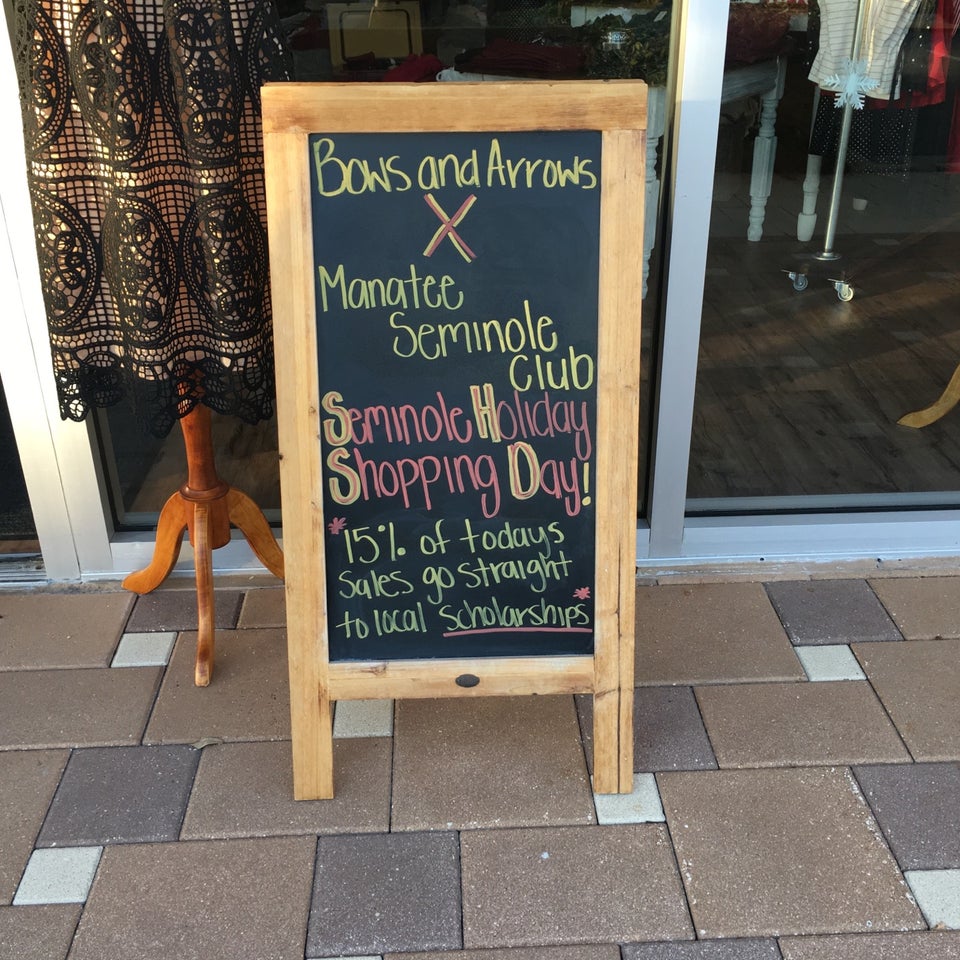 Bows and Arrows
X
Manatee
Seminole
Club
Seminole Holiday
Shopping Day!
*15% of todays
sales go straight
to local Scholarships*